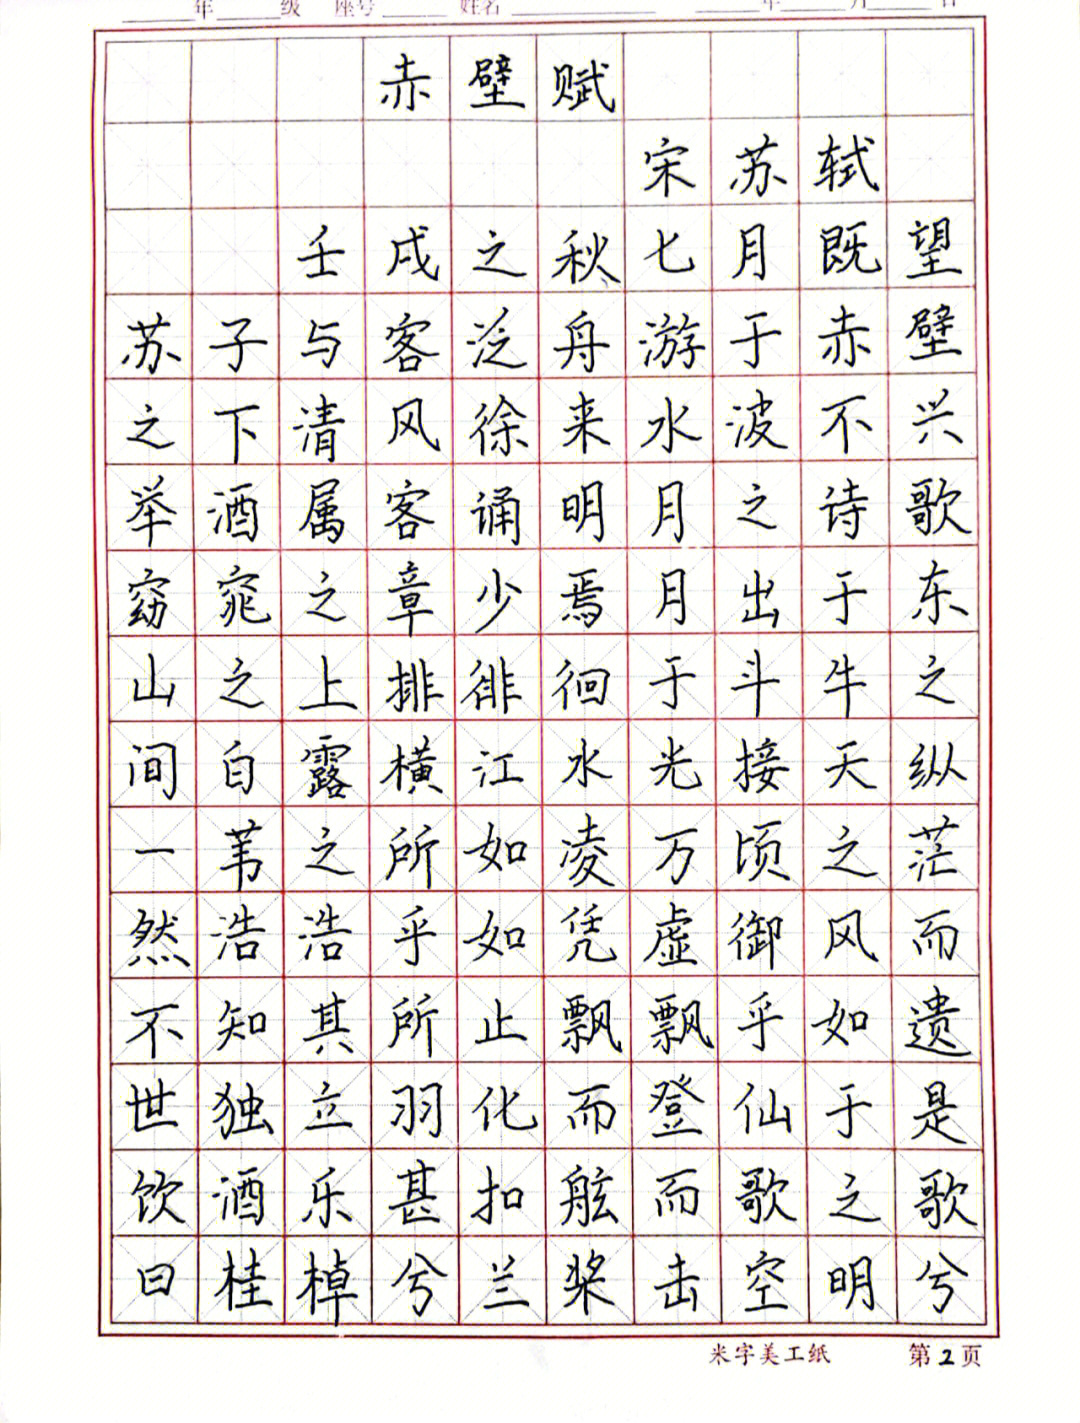 年 级 座号 姓名 年 月 日
赤壁赋
宋苏轼
壬戌之秋七月既望
苏子与客泛舟游于赤壁
之下清风徐来水波不兴
举酒属客诵明月之诗歌
窈窕之章少焉月出于东
山之上排徘徊于斗牛之
间白露横江水光接天纵
一苇之所如凌万顷之茫
然浩浩乎如凭虚御风而
不知其所止飘飘乎如遗
世独立羽化而登仙于是
饮酒乐甚扣舷而歌之歌
曰桂棹兮兰桨击空明兮
米字美工纸 第2页